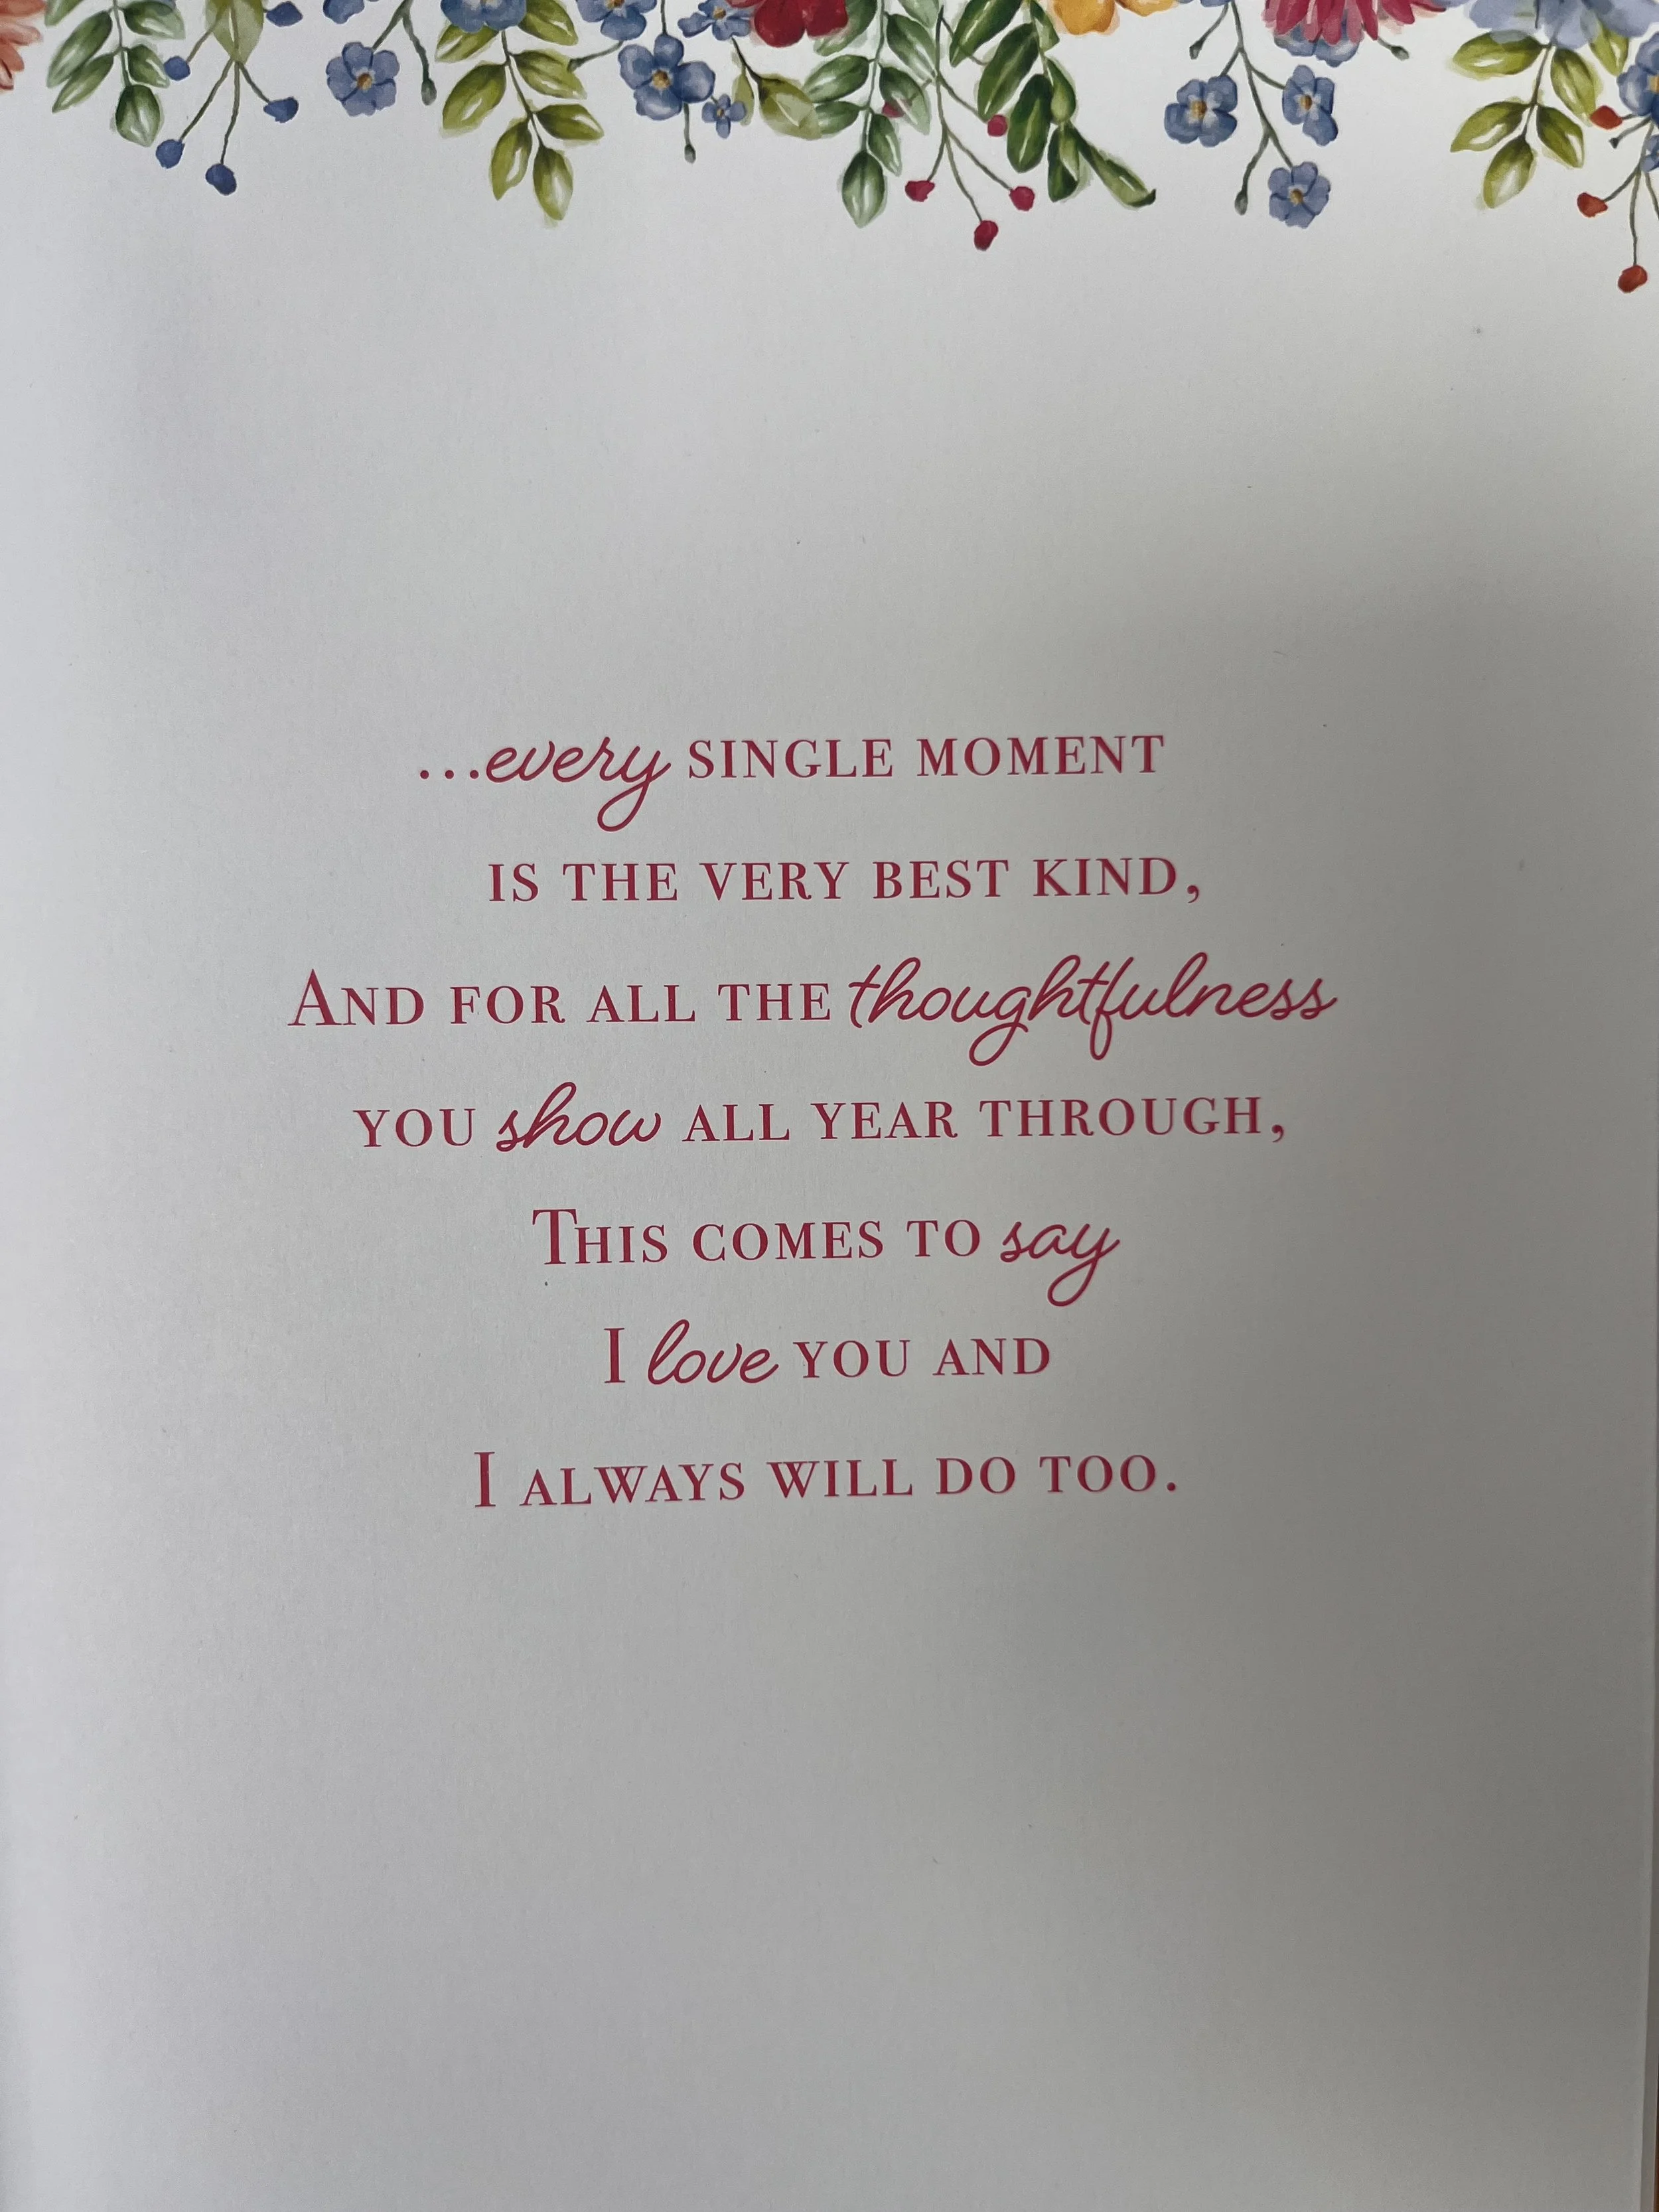 ...every SINGLE MOMENT
IS THE VERY BEST KIND,
AND FOR ALL THE thoughtfulness
YOU show ALL YEAR THROUGH,
THIS COMES TO say
I love YOU AND
I ALWAYS WILL DO TOO.